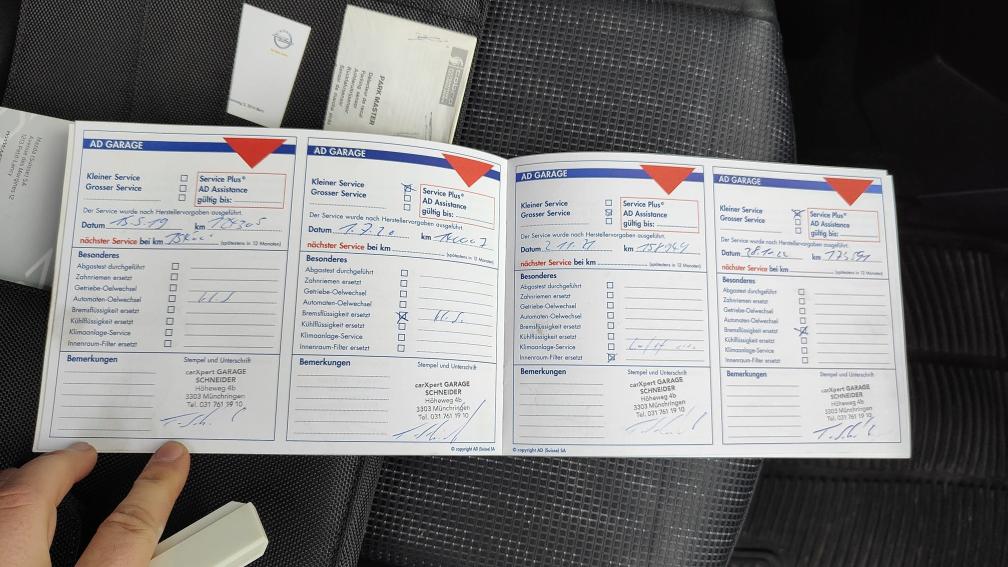 PARK MASTER
AD GARAGE
Kleiner Service
Grosser Service
Service Plus®
AD Assistance
gültig bis:
Der Service wurde nach Herstellervorgaben ausgeführt.
Datum 15.5.19 km
nächster Service bei km (spätestens in 12 Monaten)
Besonderes
Abgastest durchgeführt
Zahnriemen ersetzt
Getriebe-Oelwechsel
Automaten-Oelwechsel
Bremsflüssigkeit ersetzt
Kühlflüssigkeit ersetzt
Klimaanlage-Service
Innenraum-Filter ersetzt
Bemerkungen
Stempel und Unterschrift
carXpert GARAGE
SCHNEIDER
Höheweg 4b
3303 Münchringen
Tel. 031 761 19 10
AD GARAGE
Kleiner Service
Grosser Service
Service Plus®
AD Assistance
gültig bis:
Der Service wurde nach Herstellervorgaben ausgeführt.
Datum 1.7.20 km
nächster Service bei km (spätestens in 12 Monaten)
Besonderes
Abgastest durchgeführt
Zahnriemen ersetzt
Getriebe-Oelwechsel
Automaten-Oelwechsel
Bremsflüssigkeit ersetzt
Kühlflüssigkeit ersetzt
Klimaanlage-Service
Innenraum-Filter ersetzt
Bemerkungen
Stempel und Unterschrift
carXpert GARAGE
SCHNEIDER
Höheweg 4b
3303 Münchringen
Tel. 031 761 19 10
© copyright AD (Suisse) SA
AD GARAGE
Kleiner Service
Grosser Service
Service Plus®
AD Assistance
gültig bis:
Der Service wurde nach Herstellervorgaben ausgeführt.
Datum 2.11.21 km
nächster Service bei km (spätestens in 12 Monaten)
Besonderes
Abgastest durchgeführt
Zahnriemen ersetzt
Getriebe-Oelwechsel
Automaten-Oelwechsel
Bremsflüssigkeit ersetzt
Kühlflüssigkeit ersetzt
Klimaanlage-Service
Innenraum-Filter ersetzt
Bemerkungen
Stempel und Unterschrift
carXpert GARAGE
SCHNEIDER
Höheweg 4b
3303 Münchringen
Tel. 031 761 19 10
© copyright AD (Suisse) SA
AD GARAGE
Kleiner Service
Grosser Service
Service Plus®
AD Assistance
gültig bis:
Der Service wurde nach Herstellervorgaben ausgeführt.
Datum 28.10.22 km
nächster Service bei km (spätestens in 12 Monaten)
Besonderes
Abgastest durchgeführt
Zahnriemen ersetzt
Getriebe-Oelwechsel
Automaten-Oelwechsel
Bremsflüssigkeit ersetzt
Kühlflüssigkeit ersetzt
Klimaanlage-Service
Innenraum-Filter ersetzt
Bemerkungen
Stempel und Unterschrift
carXpert GARAGE
SCHNEIDER
Höheweg 4b
3303 Münchringen
Tel. 031 761 19 10